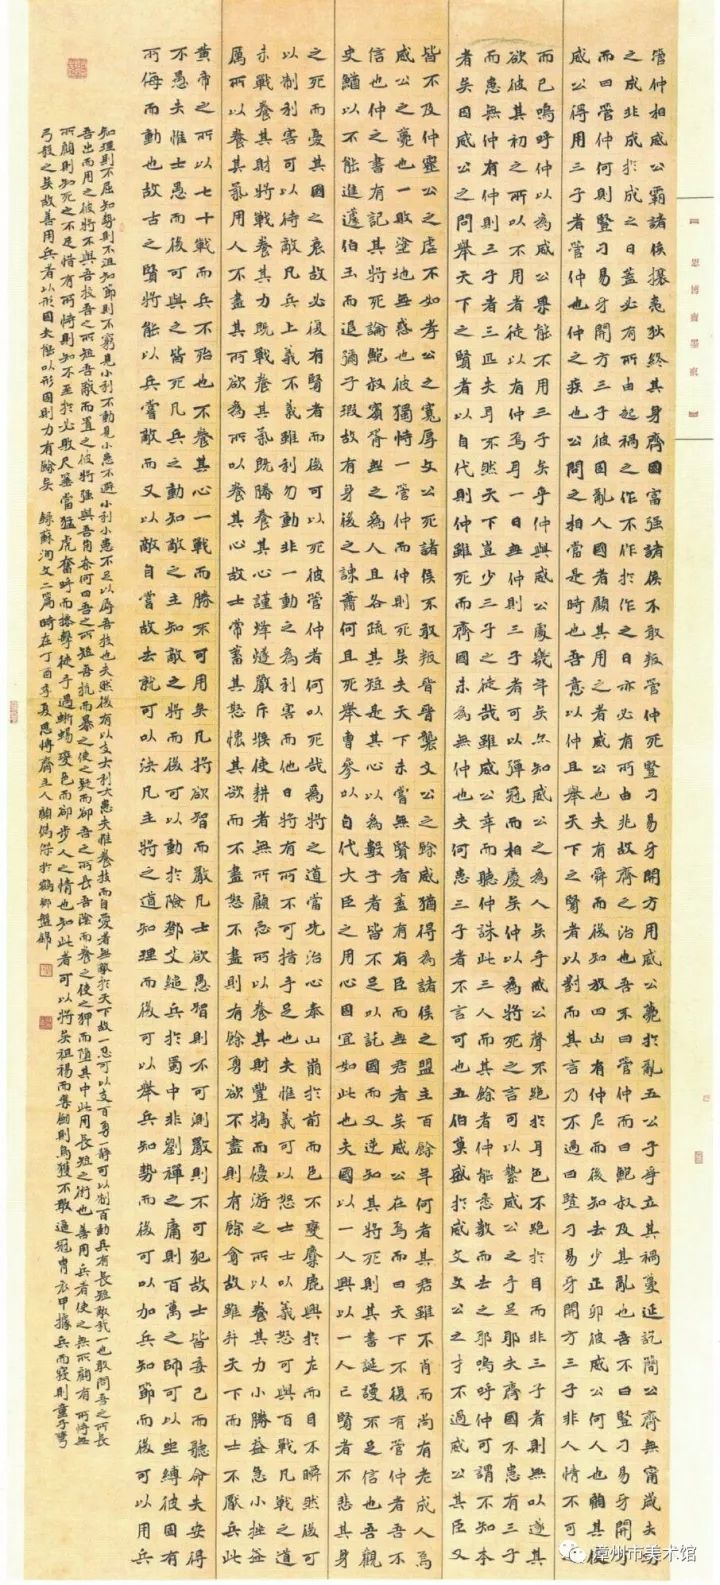 管仲相威公霸諸侯攘夷狄終其身齊國富强諸侯不敢叛管仲死豎刁易牙開方用威公薨於亂五公子爭立其禍蔓延訖簡公齊無甯歲夫功
之成非成於成之日蓋必有所由起禍之作不作於作之日亦必有所由兆故齊之治也吾不曰管仲而曰鮑叔及其亂也吾不曰豎刁易牙開方
而曰管仲何則豎刁易牙開方三子彼固亂人國者顧其用之者威公也夫有舜而後知放四凶有仲尼而後知去少正卯彼威公何人也顧其使
威公得用三子者管仲也仲之疾也公問之相當是時也吾意以仲且舉天下之賢者以對而其言乃不過曰豎刁易牙開方三子非人情不可
而已嗚呼仲以為威公果能不用三子矣乎仲與威公處幾年矣亦知威公之為人矣乎威公聲不絶於耳色不絶於目而非三子者則無以遂其
欲彼其初之所以不用者徒以有仲焉耳一日無仲則三子者可以彈冠而相慶矣仲以為將死之言可以縶威公之手足耶夫齊國不患有三子
而患無仲有仲則三子者三匹夫耳不然天下豈少三子之徒哉雖威公幸而聽仲誅此三人而其餘者仲能悉數而去之耶嗚呼仲可謂不知本
者矣因威公之問舉天下之賢者以自代則仲雖死而齊國未為無仲也夫何患三子者不言可也五伯莫盛於威文文公之才不過威公其臣又
皆不及仲靈公之虐不如孝公之寬厚文公死諸侯不敢叛晉晉襲文公之餘威猶得為諸侯之盟主百餘年何者其君雖不肖而尚有老成人焉
威公之薨也一敗塗地無惑也彼獨恃一管仲而仲則死矣夫天下未嘗無賢者蓋有有臣而無君者矣威公在焉而曰天下不復有管仲者吾不
信也仲之書有記其將死論鮑叔賓胥無之為人且各疏其短是其心以為數子者皆不足以託國而又逆知其將死則其書誕謾不足信也吾觀
史鰌以不能進蘧伯玉而退彌子瑕故有身後之諫蕭何且死舉曹參以自代大臣之用心固宜如此也夫國以一人興以一人亡賢者不悲其身
之死而憂其國之衰故必復有賢者而後可以死彼管仲者何以死哉為將之道當先治心泰山崩於前而色不變麋鹿興於左而目不瞬然後可
以制利害可以待敵凡兵上義不義雖利勿動非一動之為利害而他日將有所不可措手足也夫惟義可以怒士士以義怒可與百戰凡戰之道
未戰養其財將戰養其力既戰養其氣既勝養其心謹烽燧嚴斥堠使耕者無所顧忌所以養其財豐犒而優游之所以養其力小勝益急小挫益
厲所以養其氣用人不盡其所欲為所以養其心故士常蓄其怒懷其欲而不盡怒不盡則有餘勇欲不盡則有餘貪故雖并天下而士不厭兵此
黄帝之所以七十戰而兵不殆也不養其心一戰而勝不可用矣凡將欲智而嚴凡士欲愚智則不可測嚴則不可犯故士皆委己而聽命夫安得
不愚夫惟士愚而後可與之皆死凡兵之動知敵之主知敵之將而後可以動於險鄧艾縋兵於蜀中非劉禪之庸則百萬之師可以坐縛彼固有
所侮而動也故古之賢將能以兵嘗敵而又以敵自嘗故去就可以決凡主將之道知理而後可以舉兵知勢而後可以加兵知節而後可以用兵
知理則不屈知勢則不沮知節則不窮見小利不動見小患不避小利小患不足以辱吾技也夫然後有以支大利大患夫惟養技而自愛者無敵於天下故一忍可以支百勇一靜可以制百動兵有長短敵我一也敢問吾之所長
吾出而用之彼將不與吾校吾之所短吾蔽而置之彼將强與吾角奈何曰吾之所短吾抗而暴之使之疑而卻吾之所長吾陰而養之使之狎而墮其中此用長短之術也善用兵者使之無所顧有所恃無
所顧則知死之不足惜有所恃則知不至於必敗尺箠當猛虎奮呼而操擊徒手遇蜥蜴變色而卻步人之情也知此者可以將矣袒裼而案劍則烏獲不敢逼冠冑衣甲據兵而寢則童子彎
弓殺之矣故善用兵者以形固夫能以形固則力有餘矣 錄蘇洵文二篇時在丁酉年夏思博齋主人於鶴鄉盤錦
思博齋墨痕
漳州市美术馆